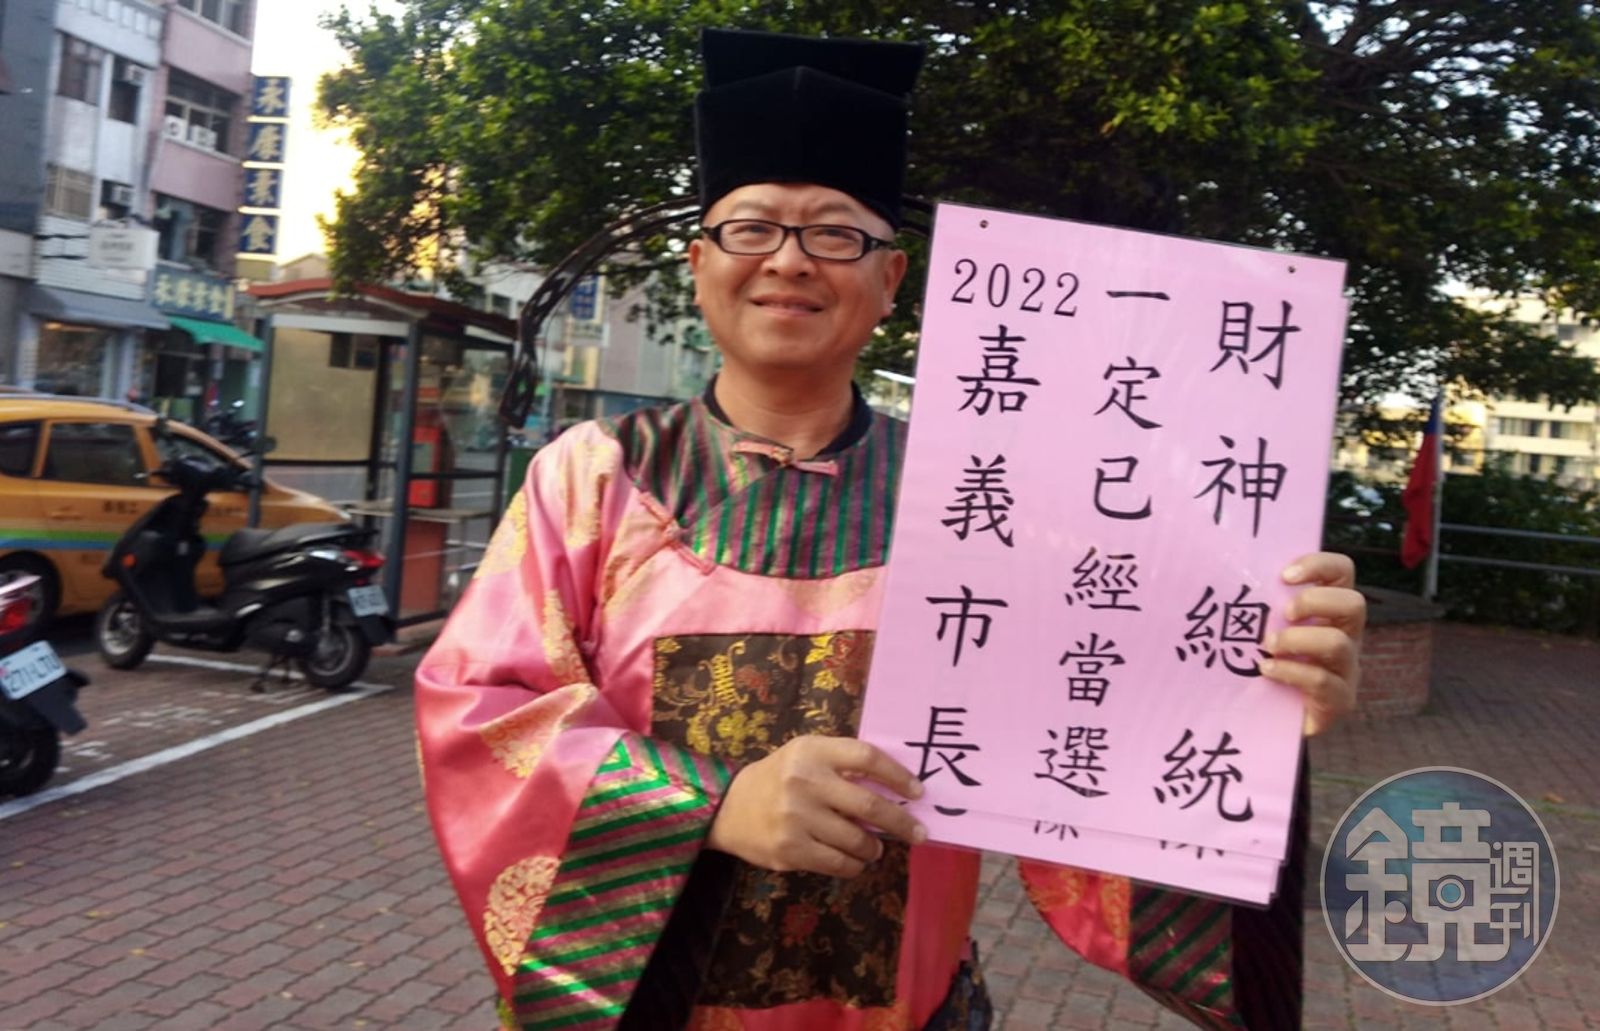 財神總統
一定已經當選
2022嘉義市長
永慶素食
永慶素食
271-LTU
鏡週刊